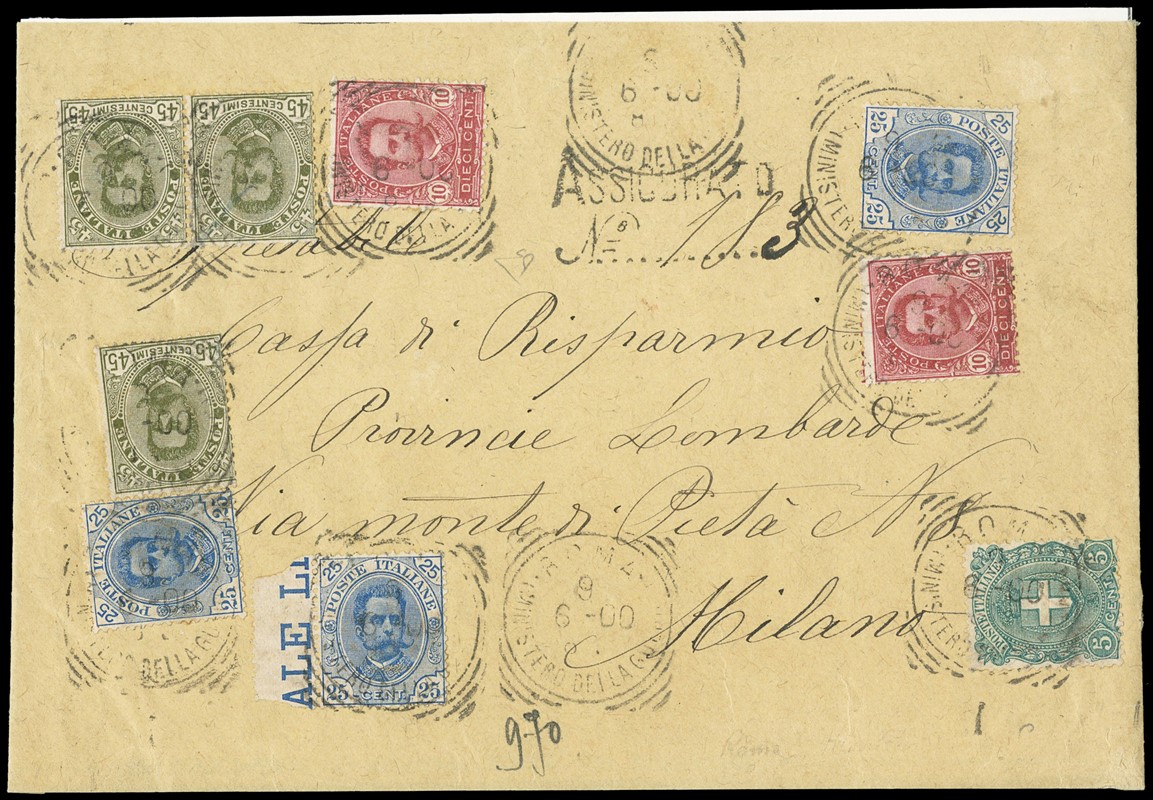 45 CENTESIMI 45
POSTE ITALIANE
45 CENTESIMI 45
POSTE ITALIANE
POSTE ITALIANE
10 DIECI CENT. 10
8
6 -00
MINISTERO DELLA
ASSICURATO
No 183
25 POSTE ITALIANE 25
25 25
POSTE ITALIANE
10 DIECI CENT. 10
Cassa di Risparmio
Provincie Lombarde
Via monte di Pietà N 8
Milano
45 CENTESIMI 45
POSTE ITALIANE
25 CENT. 25
POSTE ITALIANE 25
ALE LI
25 POSTE ITALIANE 25
25 CENT. 25
ROMA
9
6 -00
MINISTERO DELLA GUERRA
POSTE ITALIANE
5 CENT. 5
970